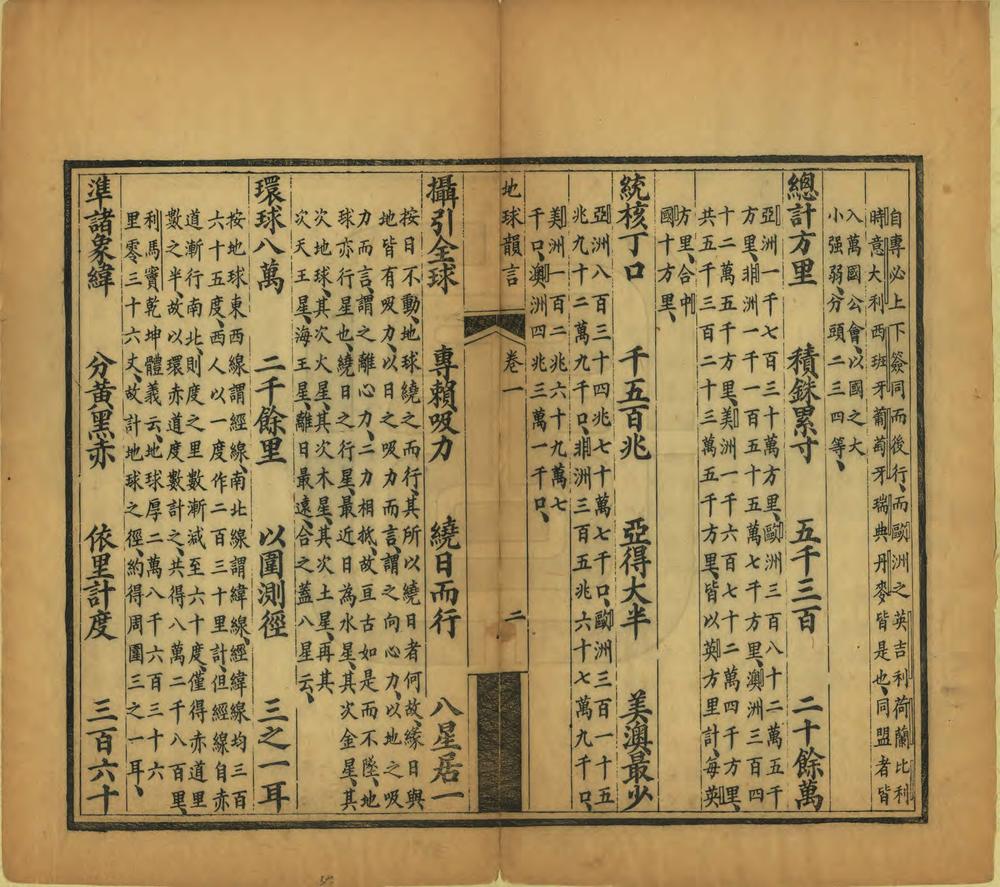 自專必上下簽同而後行、而歐洲之英吉利荷蘭比利
時意大利西班牙葡萄牙瑞典丹麥皆是也、同盟者皆
入萬國公會、以國之大
小强弱、分頭二三四等、
總計方里　積銖累寸　五千三百　二十餘萬
亞洲一千七百三十萬方里、歐洲三百八十二萬五千
方里、非洲一千一百五十五萬七千方里、澳洲三百四
十二萬五千方里、美洲一千六百七十二萬四千方里、
共五千三百二十三萬五千方里、皆以英方里計、每英
方里、合中
國十方里、
統核丁口　千五百兆　亞得大半　美澳最少
亞洲八百三十四兆七十萬七千口、歐洲三百一十五
兆九十二萬九千口、非洲三百五兆六十七萬九千口、
美洲一百二兆六十九萬七
千口、澳洲四兆三萬一千口、
地球韻言　卷一　二
攝引全球　專賴吸力　繞日而行　八星居一
按日不動、地球繞之而行、其所以繞日者何故、緣日與
地皆有吸力、以日之吸力而言、謂之向心力、以地之吸
力而言、謂之離心力、二力相抵、故亘古如是而不墜、地
球亦行星也、繞日之行星、最近日為水星、其次金星、其
次地球、其次火星、其次木星、其次土星、再其
次天王星、海王星、離日最遠、合之蓋八星云、
環球八萬　二千餘里　以圍測徑　三之一耳
按地球東西線謂經線、南北線謂緯線、經緯線均三百
六十五度、西人以一度作二百三十里計、但經線自赤
道漸行南北、則度之里數漸減、至六十度、僅得赤道里
數之半、故以環赤道度數計之、共得八萬二千八百里、
利馬竇乾坤體義云、地球厚二萬八千六百三十六
里零三十六丈、故計地球之徑、約得周圍三之一耳、
準諸象緯　分黃黑赤　依里計度　三百六十